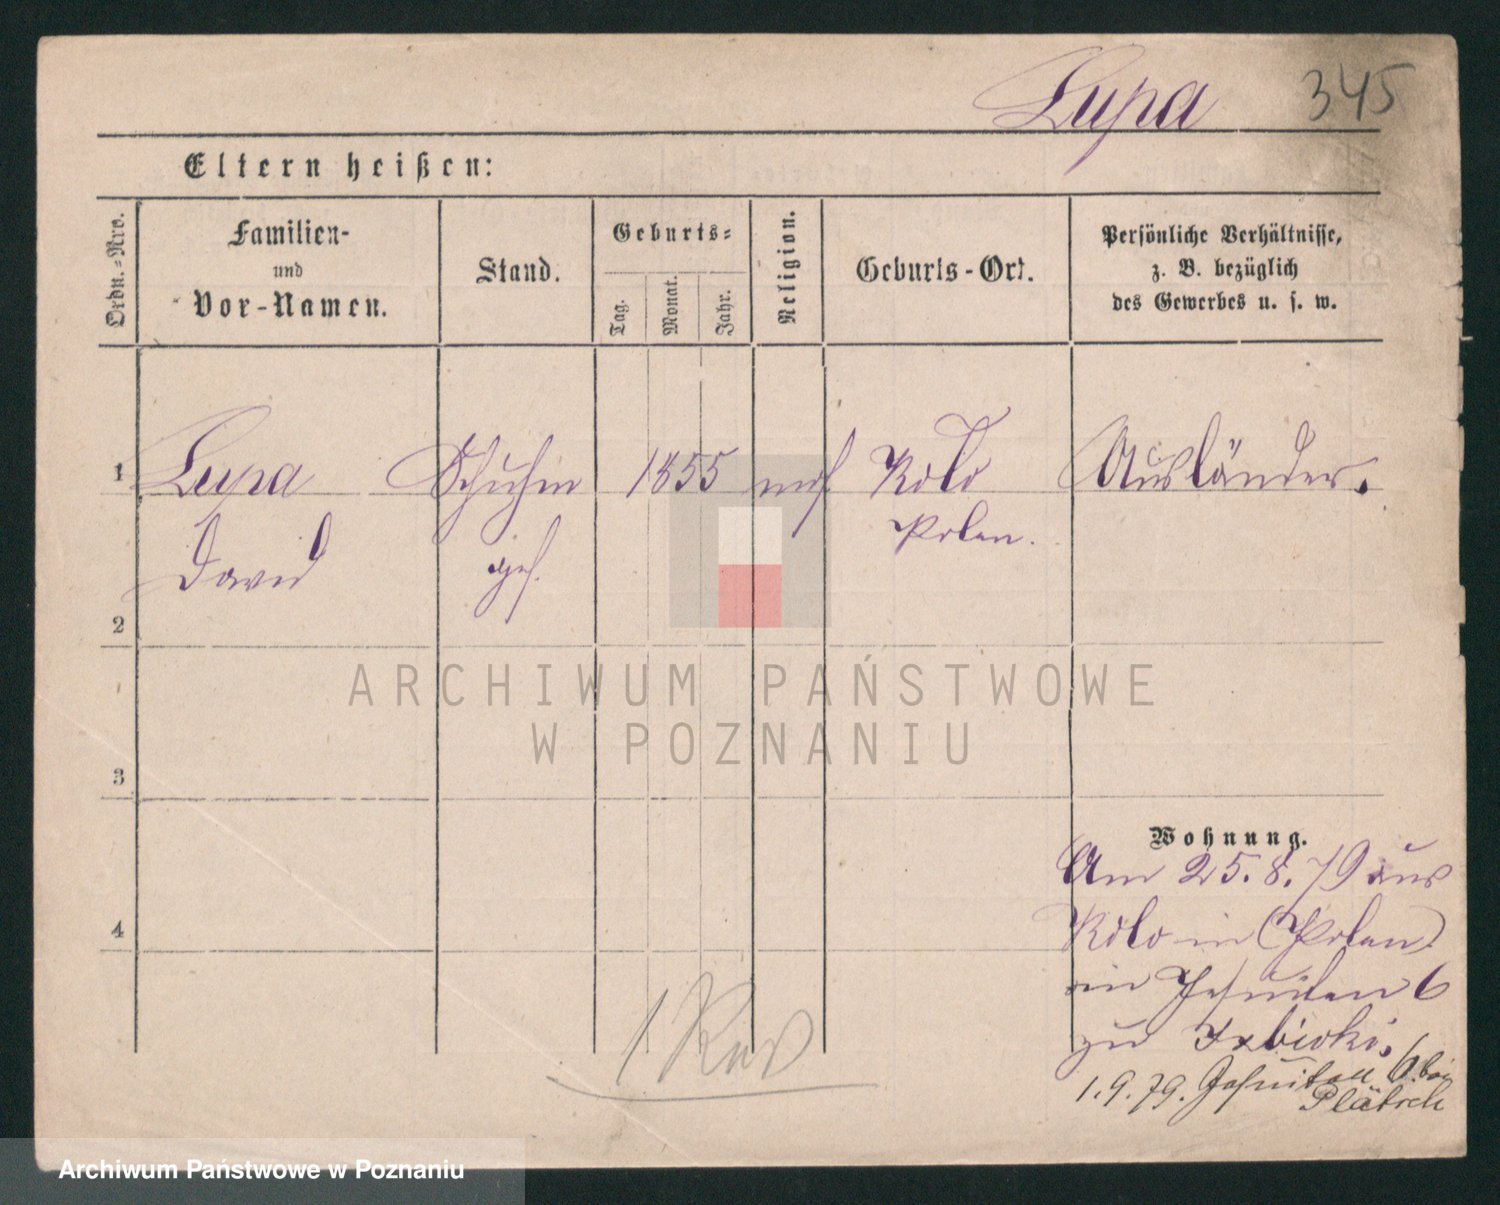 Lupa 345
Eltern heißen:
Ordn.-Nro.
Familien-
und
Vor-Namen.
Stand.
Geburts-
Tag.
Monat.
Jahr.
Religion.
Geburts-Ort.
Persönliche Verhältnisse,
z. B. bezüglich
des Gewerbes u. s. w.
1 Lupa Schuhm 1855 mos. Kolo Ausländer.
David ges. Polen.
2
3
4
Wohnung.
Am 25.8.79 aus
Kolo in (Polen)
in Jesuiten 6
zu Izbicki.
1.9.79. Jesuiten 6. bei
1
ARCHIWUM PAŃSTWOWE
W POZNANIU
Archiwum Państwowe w Poznaniu